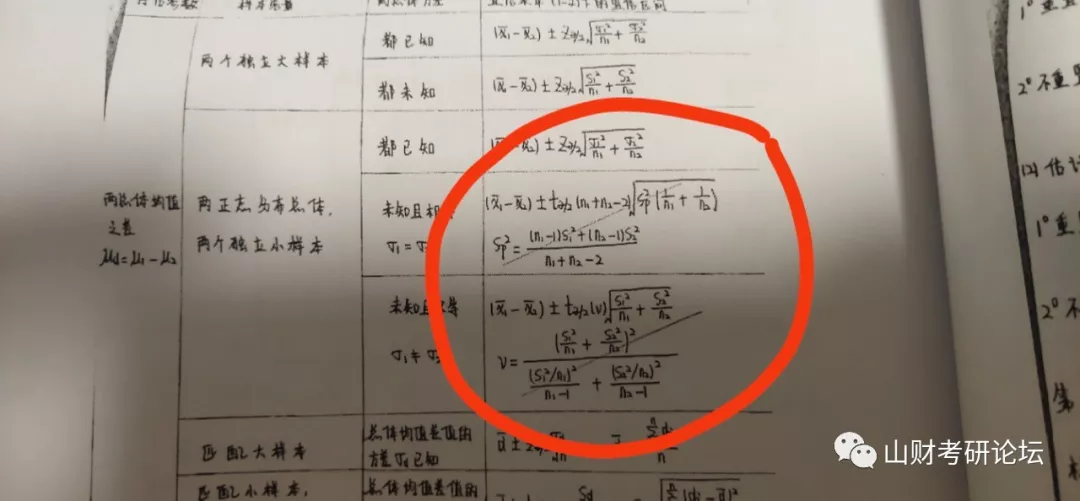 样本质量
两个独立大样本
都已知
(x̄₁-x̄₂) ± Z_{α/2}√(σ₁²/n₁ + σ₂²/n₂)
都未知
(x̄₁-x̄₂) ± Z_{α/2}√(S₁²/n₁ + S₂²/n₂)
两总体均值
之差
μd=μ₁-μ₂
两正态分布总体,
两个独立小样本
都已知
(x̄₁-x̄₂) ± Z_{α/2}√(σ₁²/n₁ + σ₂²/n₂)
未知且相
σ₁=σ
(x̄₁-x̄₂) ± t_{α/2}(n₁+n₂-2)√(Sp²(1/n₁ + 1/n₂))
Sp² = ((n₁-1)S₁²+(n₂-1)S₂²)/(n₁+n₂-2)
未知且不等
σ₁≠σ₂
(x̄₁-x̄₂) ± t_{α/2}(ν)√(S₁²/n₁ + S₂²/n₂)
ν = (S₁²/n₁ + S₂²/n₂)² / ((S₁²/n₁)²/(n₁-1) + (S₂²/n₂)²/(n₂-1))
匹配大样本
总体均值差值的
方差σd已知
匹配小样本,
总体均值差值的
1°重
2°不重
(2)估计
1°重
2°不
第
山财考研论坛